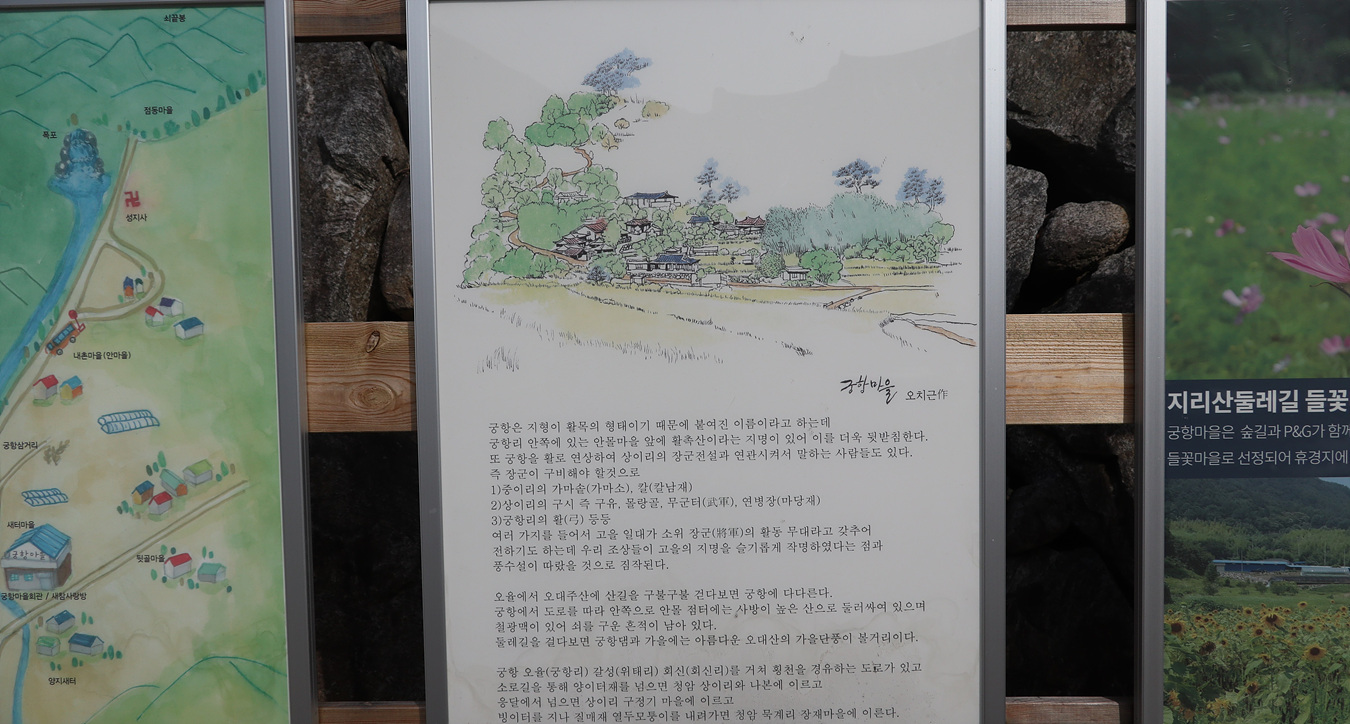 쇠끝봉
점동마을
폭포
성지사
내촌마을(안마을)
궁항삼거리
새터마을
궁항마을
뒷골마을
궁항마을회관 / 새참사랑방
양지새터
궁항마을
오치근作
궁항은 지형이 활목의 형태이기 때문에 붙여진 이름이라고 하는데
궁항리 안쪽에 있는 안몰마을 앞에 활촉산이라는 지명이 있어 이를 더욱 뒷받침한다.
또 궁항을 활로 연상하여 상이리의 장군전설과 연관시켜서 말하는 사람들도 있다.
즉 장군이 구비해야 할것으로
1)중이리의 가마솥(가마소), 칼(칼남재)
2)상이리의 구시 즉 구유, 몰랑골, 무군터(武軍), 연병장(마당재)
3)궁항리의 활(弓) 등등
여러 가지를 들어서 고을 일대가 소위 장군(將軍)의 활동 무대라고 갖추어
전하기도 하는데 우리 조상들이 고을의 지명을 슬기롭게 작명하였다는 점과
풍수설이 따랐을 것으로 짐작된다.
오율에서 오대주산에 산길을 구불구불 걷다보면 궁항에 다다른다.
궁항에서 도로를 따라 안쪽으로 안몰 점터에는 사방이 높은 산으로 둘러싸여 있으며
철광맥이 있어 쇠를 구운 흔적이 남아 있다.
둘레길을 걸다보면 궁항댐과 가을에는 아름다운 오대산의 가을단풍이 볼거리이다.
궁항 오율(궁항리) 갈성(위태리) 회신(회신리)를 거쳐 횡천을 경유하는 도로가 있고
소로길을 통해 양이터재를 넘으면 청암 상이리와 나본에 이르고
응달에서 넘으면 상이리 구정기 마을에 이르고
빙이터를 지나 질매재 열두모퉁이를 내려가면 청암 묵계리 장재마을에 이른다.
지리산둘레길 들꽃
궁항마을은 숲길과 P&G가 함께
들꽃마을로 선정되어 휴경지에